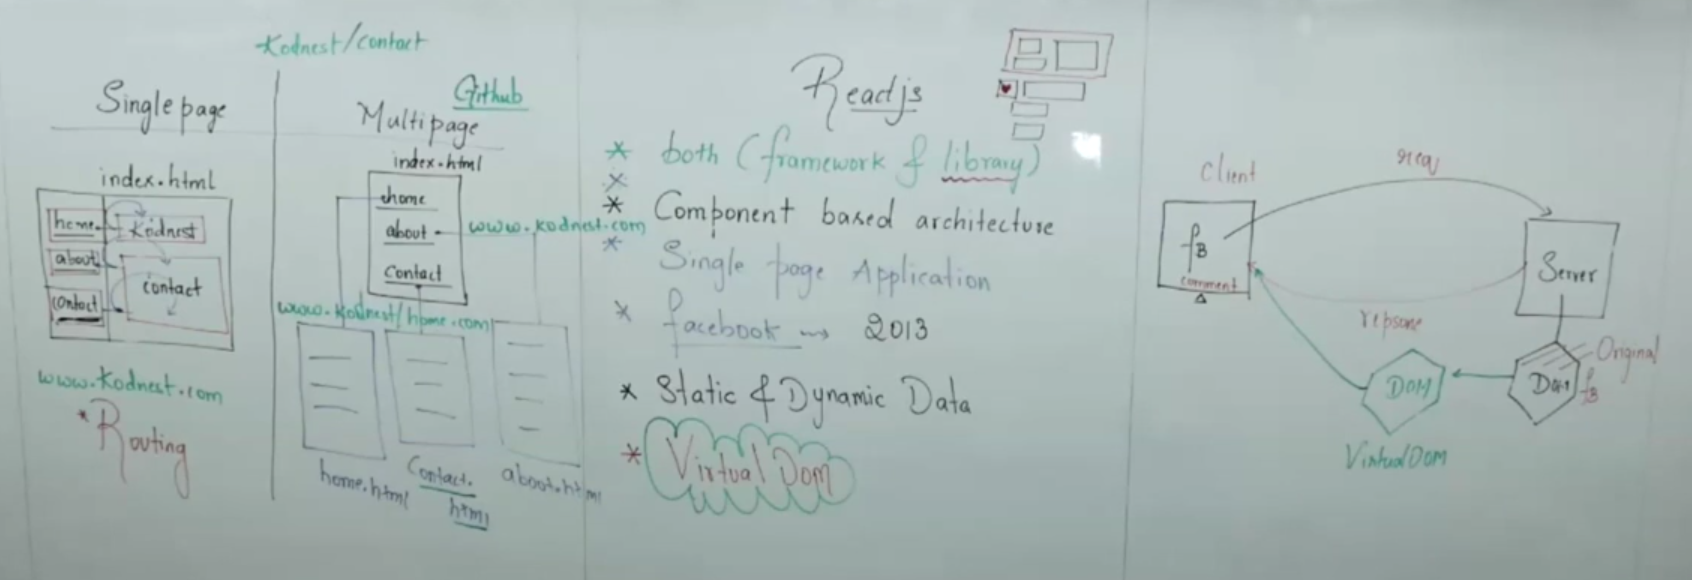 Kodnest/contact
Single page
index.html
home
Kodnest
about
contact
contact
www.kodnest.com
*Routing
Github
Multipage
index.html
home
about
www.kodnest.com
Contact
www.kodnest/home.com
home.html
Contact.
html
about.html
Reactjs
* both (framework & library)
*
* Component based architecture
* Single page Application
* facebook → 2013
* Static & Dynamic Data
* Virtual Dom
Client
req
fB
comment
Server
repsone
Original
fB
DOM
DOM
VirtualDOM